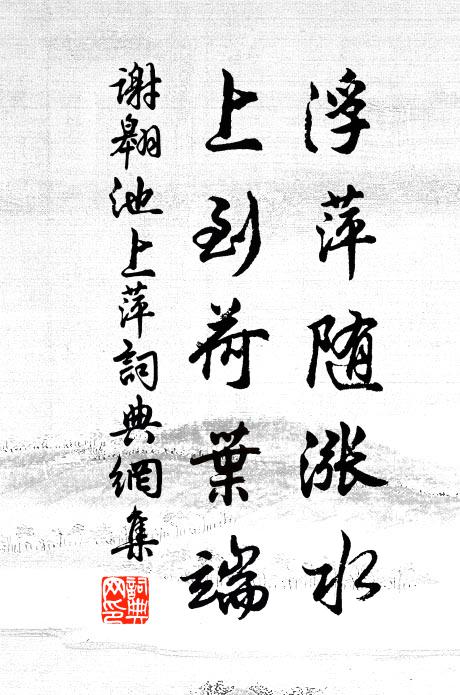 浮萍随漲水
上到荷葉端
謝翱池上萍詞典網集
詞典网印